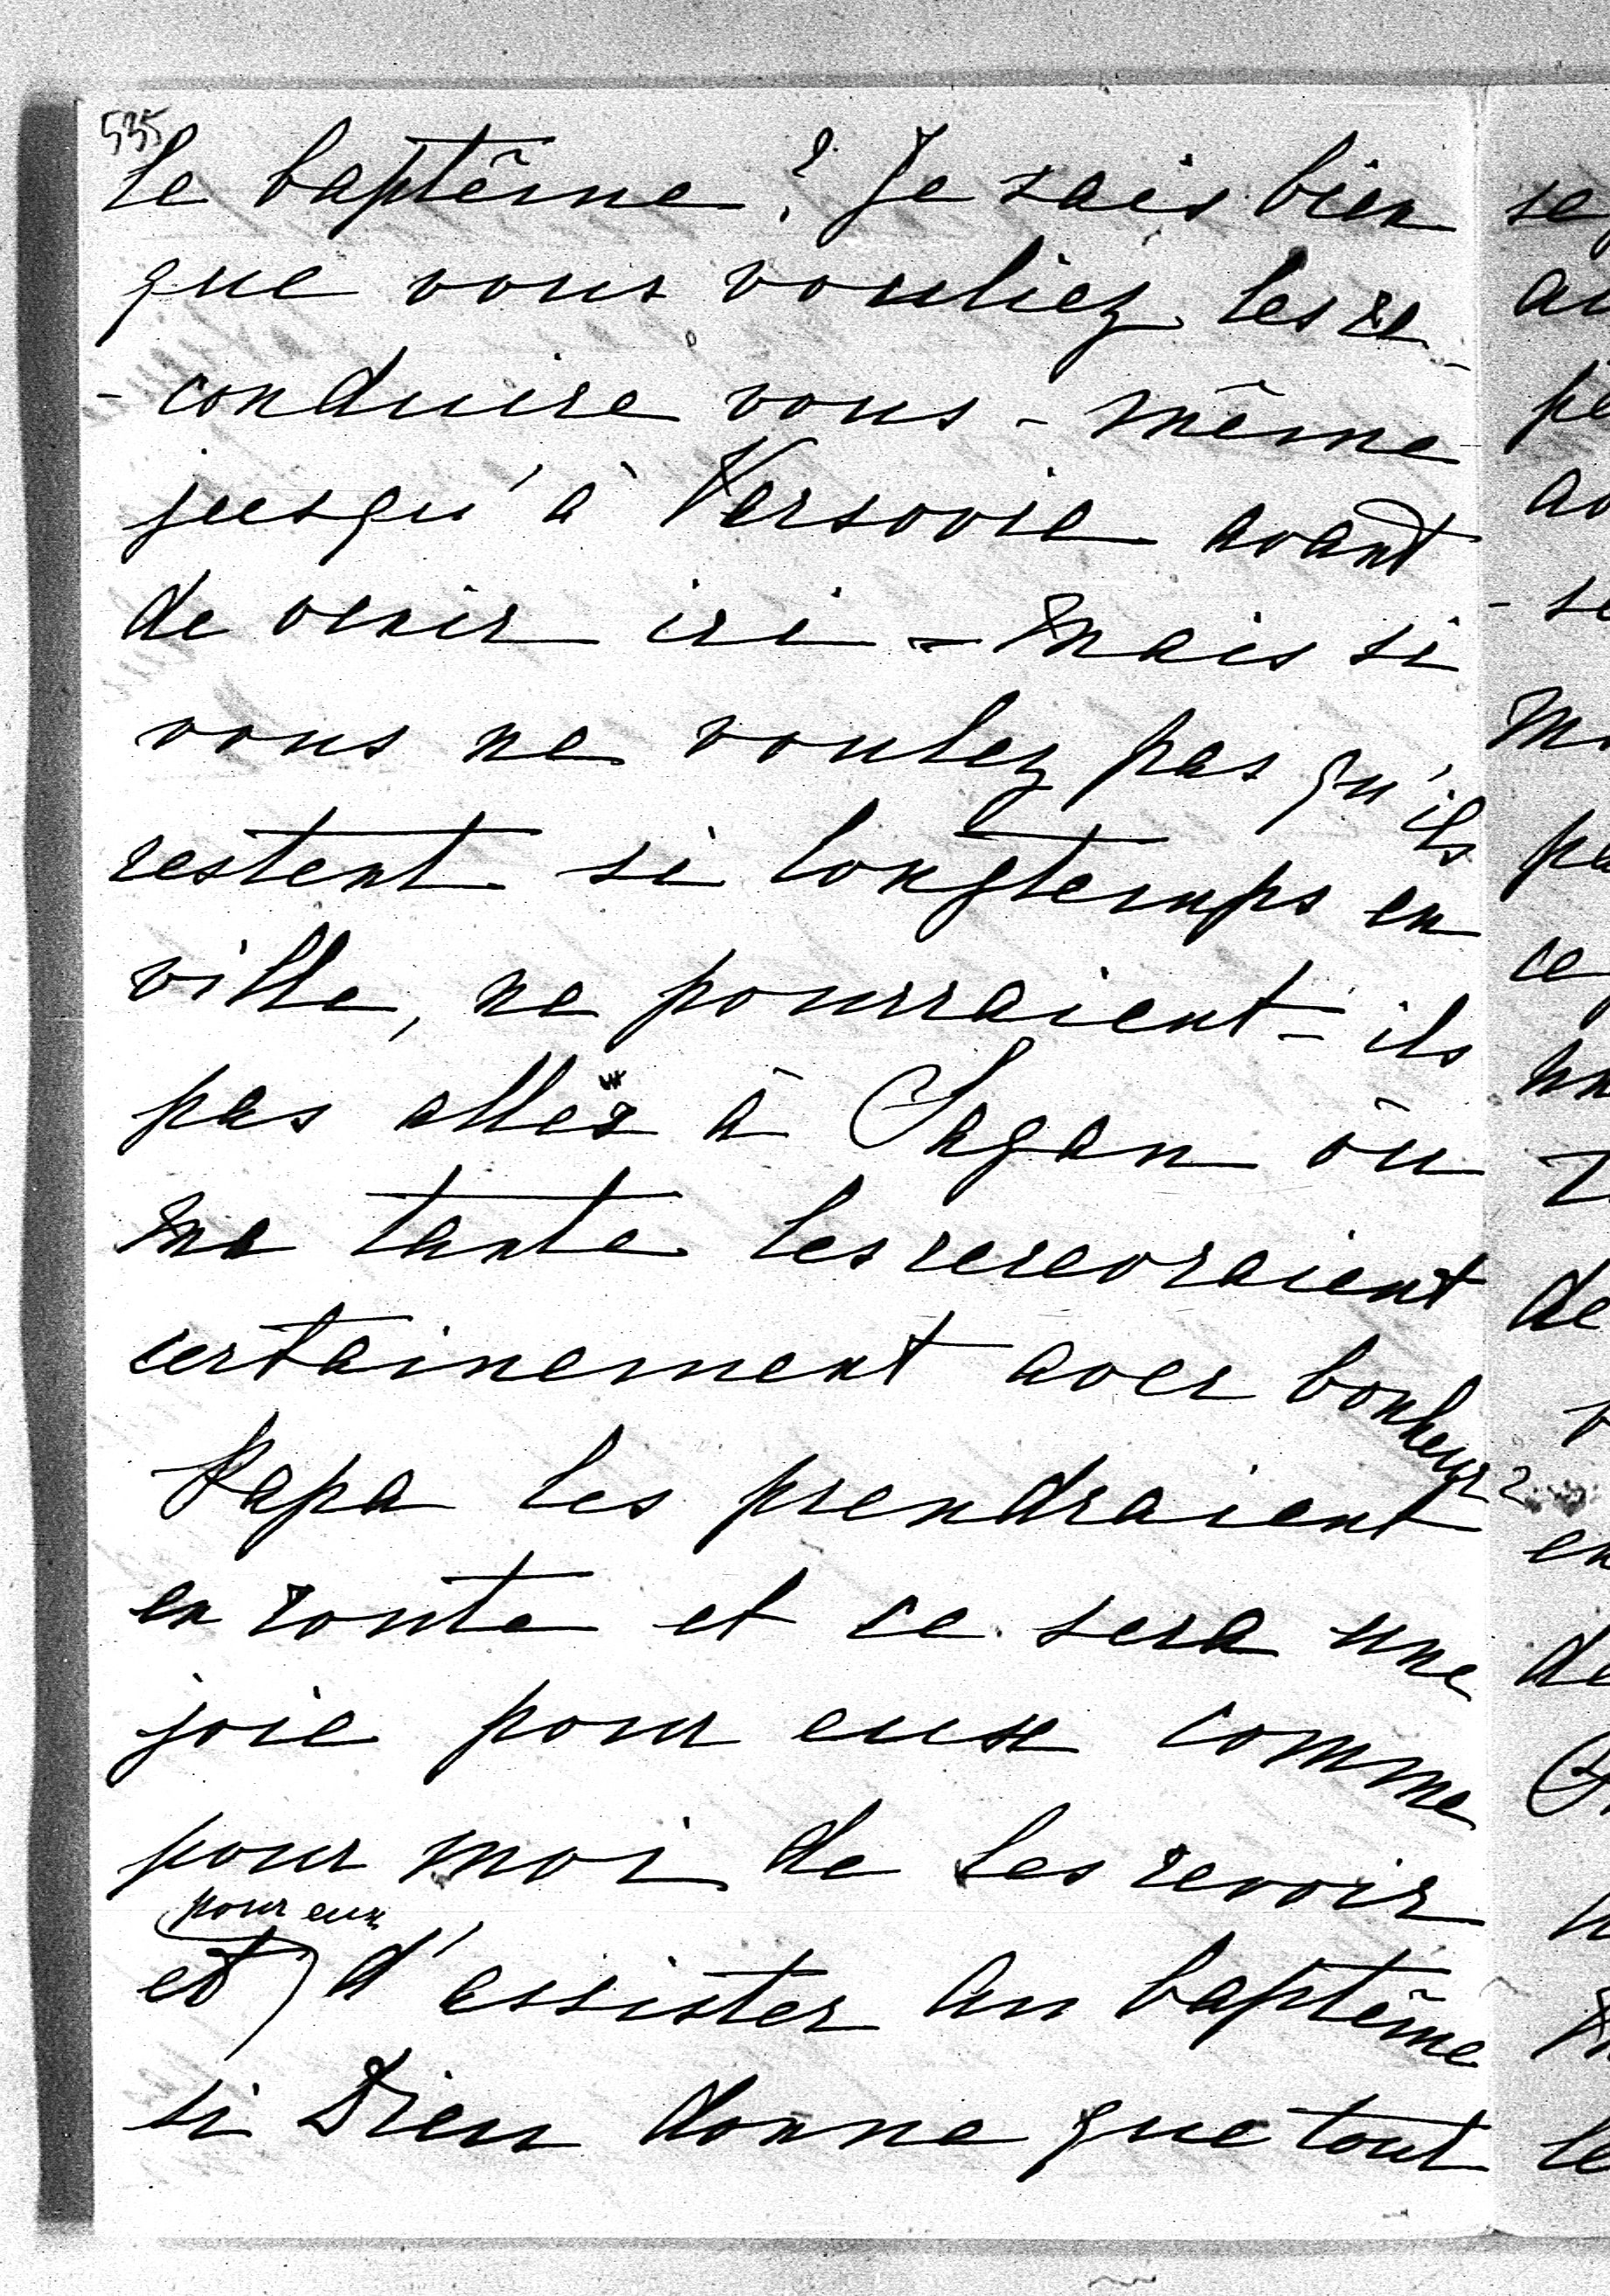 535
le baptême ? Je sais bien
que vous vouliez les re-
-conduire vous-même
jusqu'à Varsovie avant
de venir ici - Mais si
vous ne voulez pas qu'ils
restent si longtemps en
ville, ne pourraient-ils
pas aller à Sagan où
ma tante les recevraient
certainement avec bonheur ?
Papa les prendraient
en route et ce sera une
joie pour eux comme
pour moi de les revoir
pour eux
et d'assister au baptême
si Dieu donne que tout